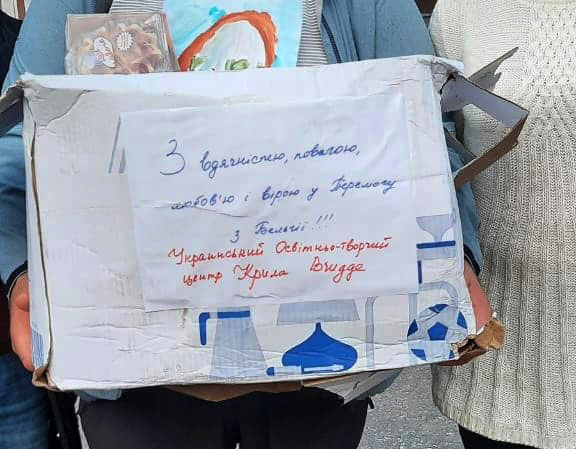 З вдячністю, повагою,
любов'ю і вірою у Перемогу
з Бельгії !!!
Український Освітньо-творчий
центр Крила